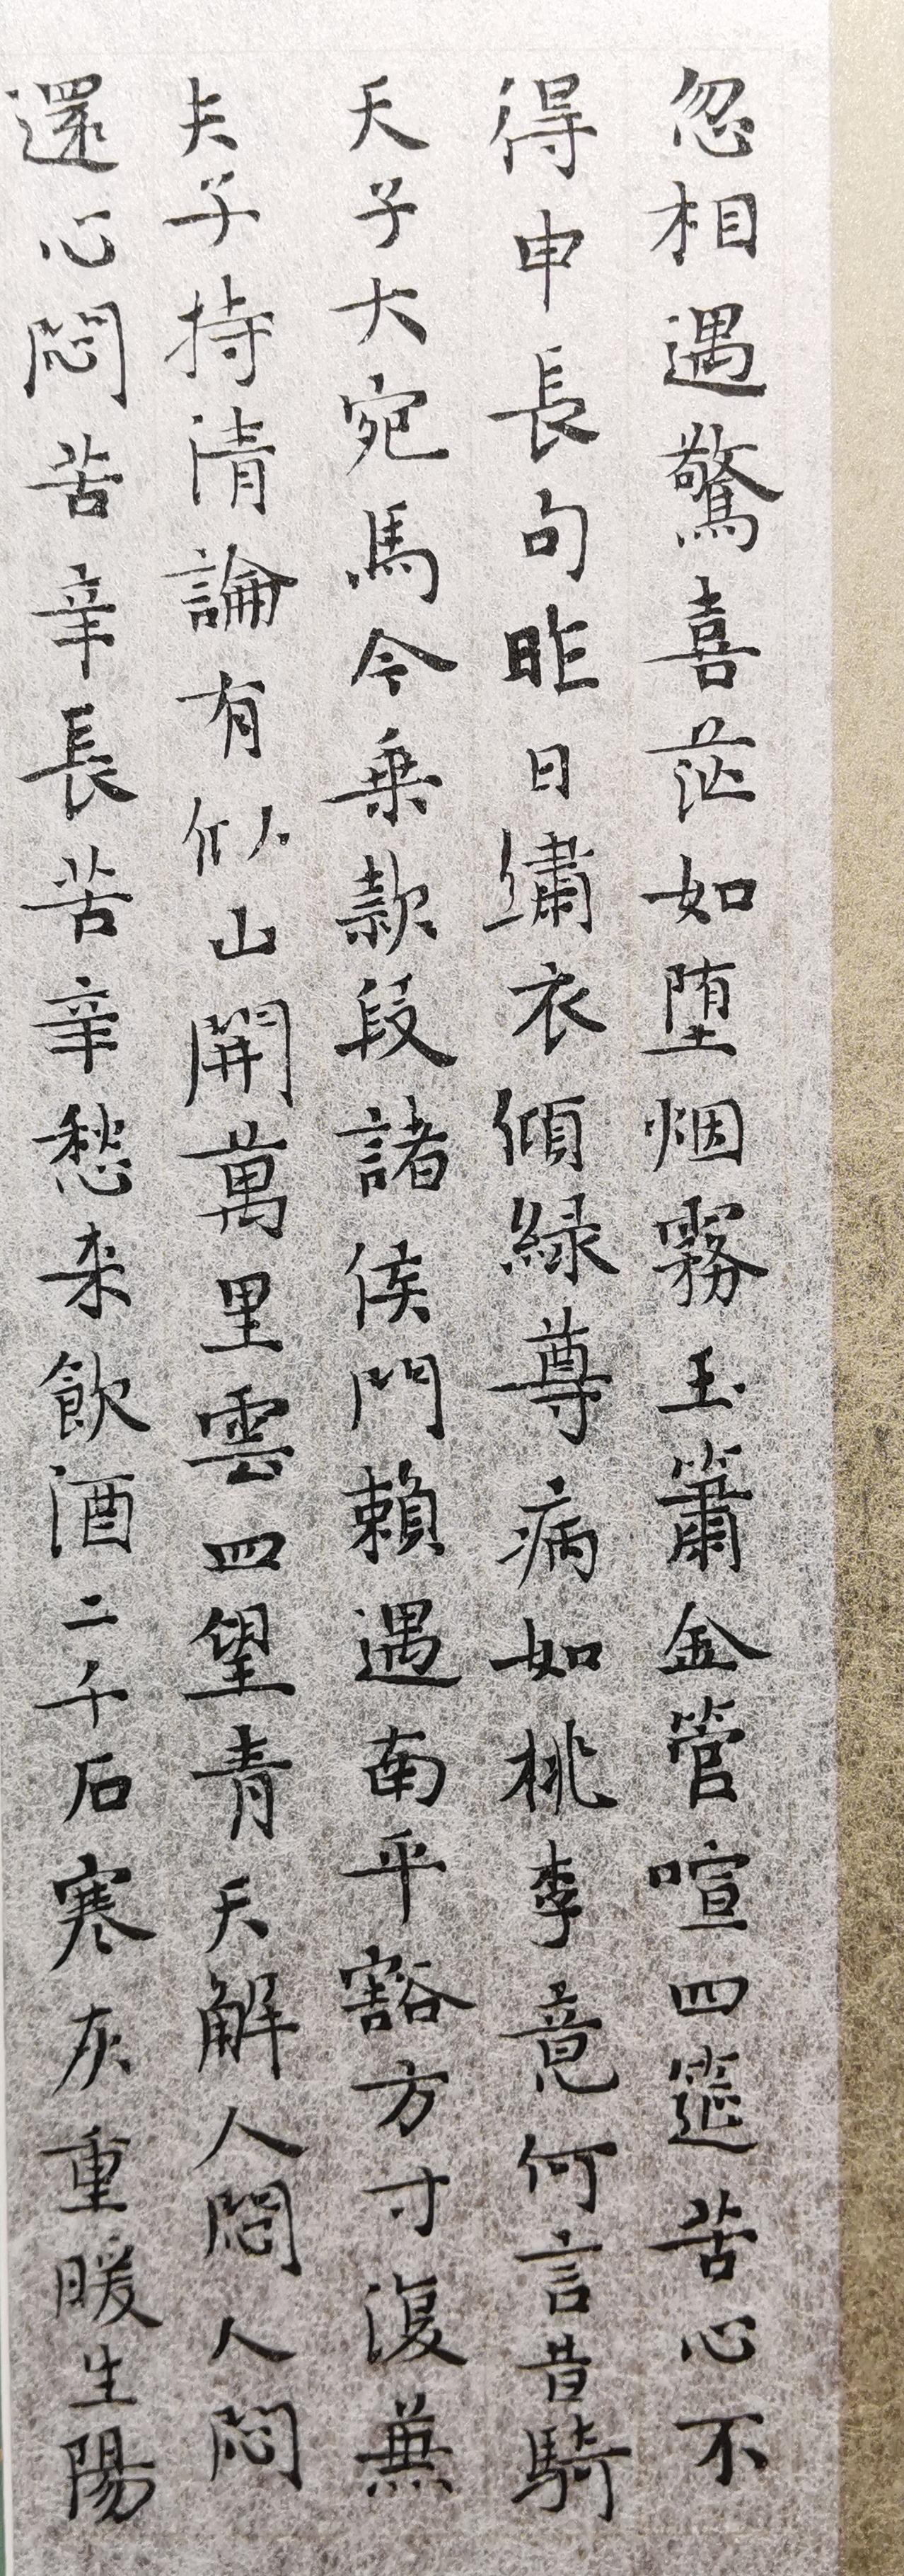 忽相遇驚喜茫如堕烟霧玉簫金管喧四筵苦心不
得申長句昨日繡衣傾緑尊病如桃李竟何言昔騎
天子大宛馬今乗款段諸侯門賴遇南平豁方寸復兼
夫子持清論有似山開萬里雲四望青天解人悶人悶
還心悶苦辛長苦辛愁来飲酒二千石寒灰重暖生陽